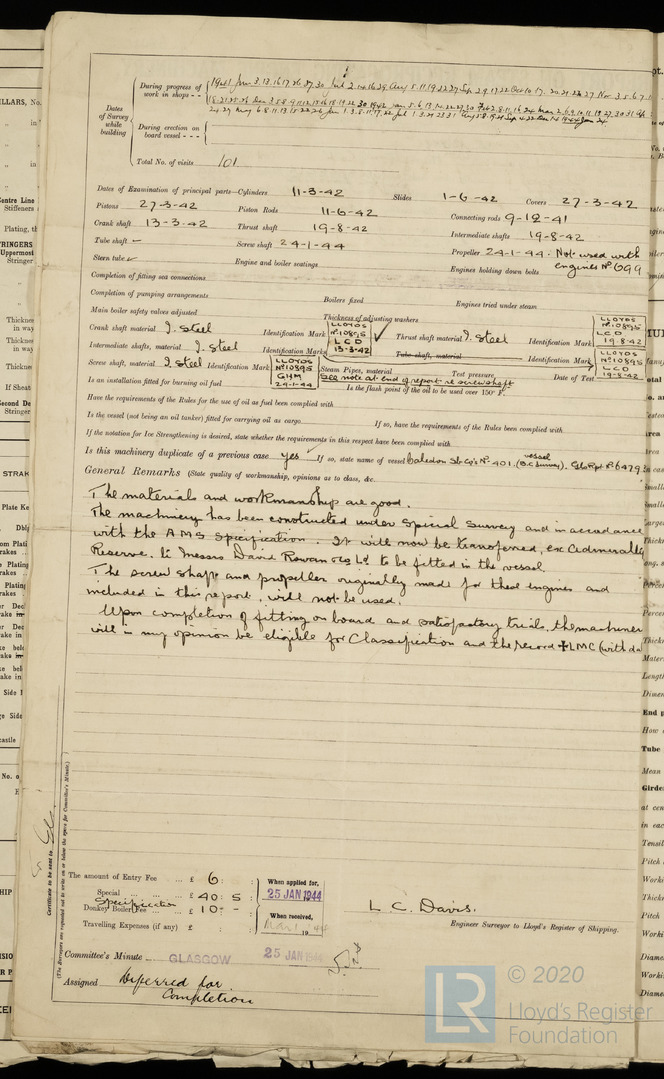 Dates of Survey while building
During progress of work in shops - -
1941 Jun 3.13.16.17.26.27.30 Jul 2.14.16.29 Aug 5.11.19.22.27 Sep 2.9.17.22 Oct 10.17.20.21.22.27 Nov 3.5.6.7.
During erection on board vessel - - -
Total No. of visits 101
Dates of Examination of principal parts—Cylinders 11-3-42 Slides 1-6-42 Covers 27-3-42
Pistons 27-3-42 Piston Rods 11-6-42 Connecting rods 9-12-41
Crank shaft 13-3-42 Thrust shaft 19-8-42 Intermediate shafts 19-8-42
Tube shaft ✓ Screw shaft 24-1-44 Propeller 24-1-44. Not used with
Stern tube ✓ Engine and boiler seatings Engines holding down bolts engines No 699
Completion of fitting sea connections
Completion of pumping arrangements Boilers fixed Engines tried under steam
Main boiler safety valves adjusted Thickness of adjusting washers
Crank shaft material I. Steel Identification Mark LLOYDS No 10895 LCD 13-3-42 Thrust shaft material I. Steel Identification Mark LLOYDS No 10895 LCD 19-8-42
Intermediate shafts, material I. Steel Identification Marks Tube shaft, material Identification Mark LLOYDS No 10895 LCD 19-8-42
Screw shaft, material I. Steel Identification Mark LLOYDS No 10895 GHM 24-1-44 Steam Pipes, material Test pressure Date of Test
See note at end of report re screwshaft
Is an installation fitted for burning oil fuel Is the flash point of the oil to be used over 150° F.
Have the requirements of the Rules for the use of oil as fuel been complied with
Is the vessel (not being an oil tanker) fitted for carrying oil as cargo If so, have the requirements of the Rules been complied with
If the notation for Ice Strengthening is desired, state whether the requirements in this respect have been complied with
Is this machinery duplicate of a previous case yes If so, state name of vessel Caledon Sb Co's No. 401. vessel (B.C. Survey). Gls Rpt. No 6479.
General Remarks (State quality of workmanship, opinions as to class, &c.
The materials and workmanship are good.
The machinery has been constructed under Special Survey and in accordance
with the AMS Specification. It will now be transferred, ex Admiralty
Reserve, to Messrs David Rowan & Co Ld to be fitted in the vessel.
The screw shaft and propeller originally made for these engines and
included in this report, will not be used.
Upon completion of fitting on board and satisfactory trials, the machinery
will in my opinion be eligible for Classification and the record ✠LMC (with da
Certificate to be sent to
(The Surveyors are requested not to write on or below the space for Committee's Minute.)
The amount of Entry Fee ... £ 6 : :
Special ... ... £ 40 : 5 :
Specification
Donkey Boiler Fee ... £ 10 : - :
Travelling Expenses (if any) £ : :
When applied for,
25 JAN 1944
When received,
19 44
L. C. Davis.
Engineer Surveyor to Lloyd's Register of Shipping.
Committee's Minute GLASGOW 25 JAN 1944
Assigned Deferred for
Completion
LR
© 2020
Lloyd's Register
Foundation